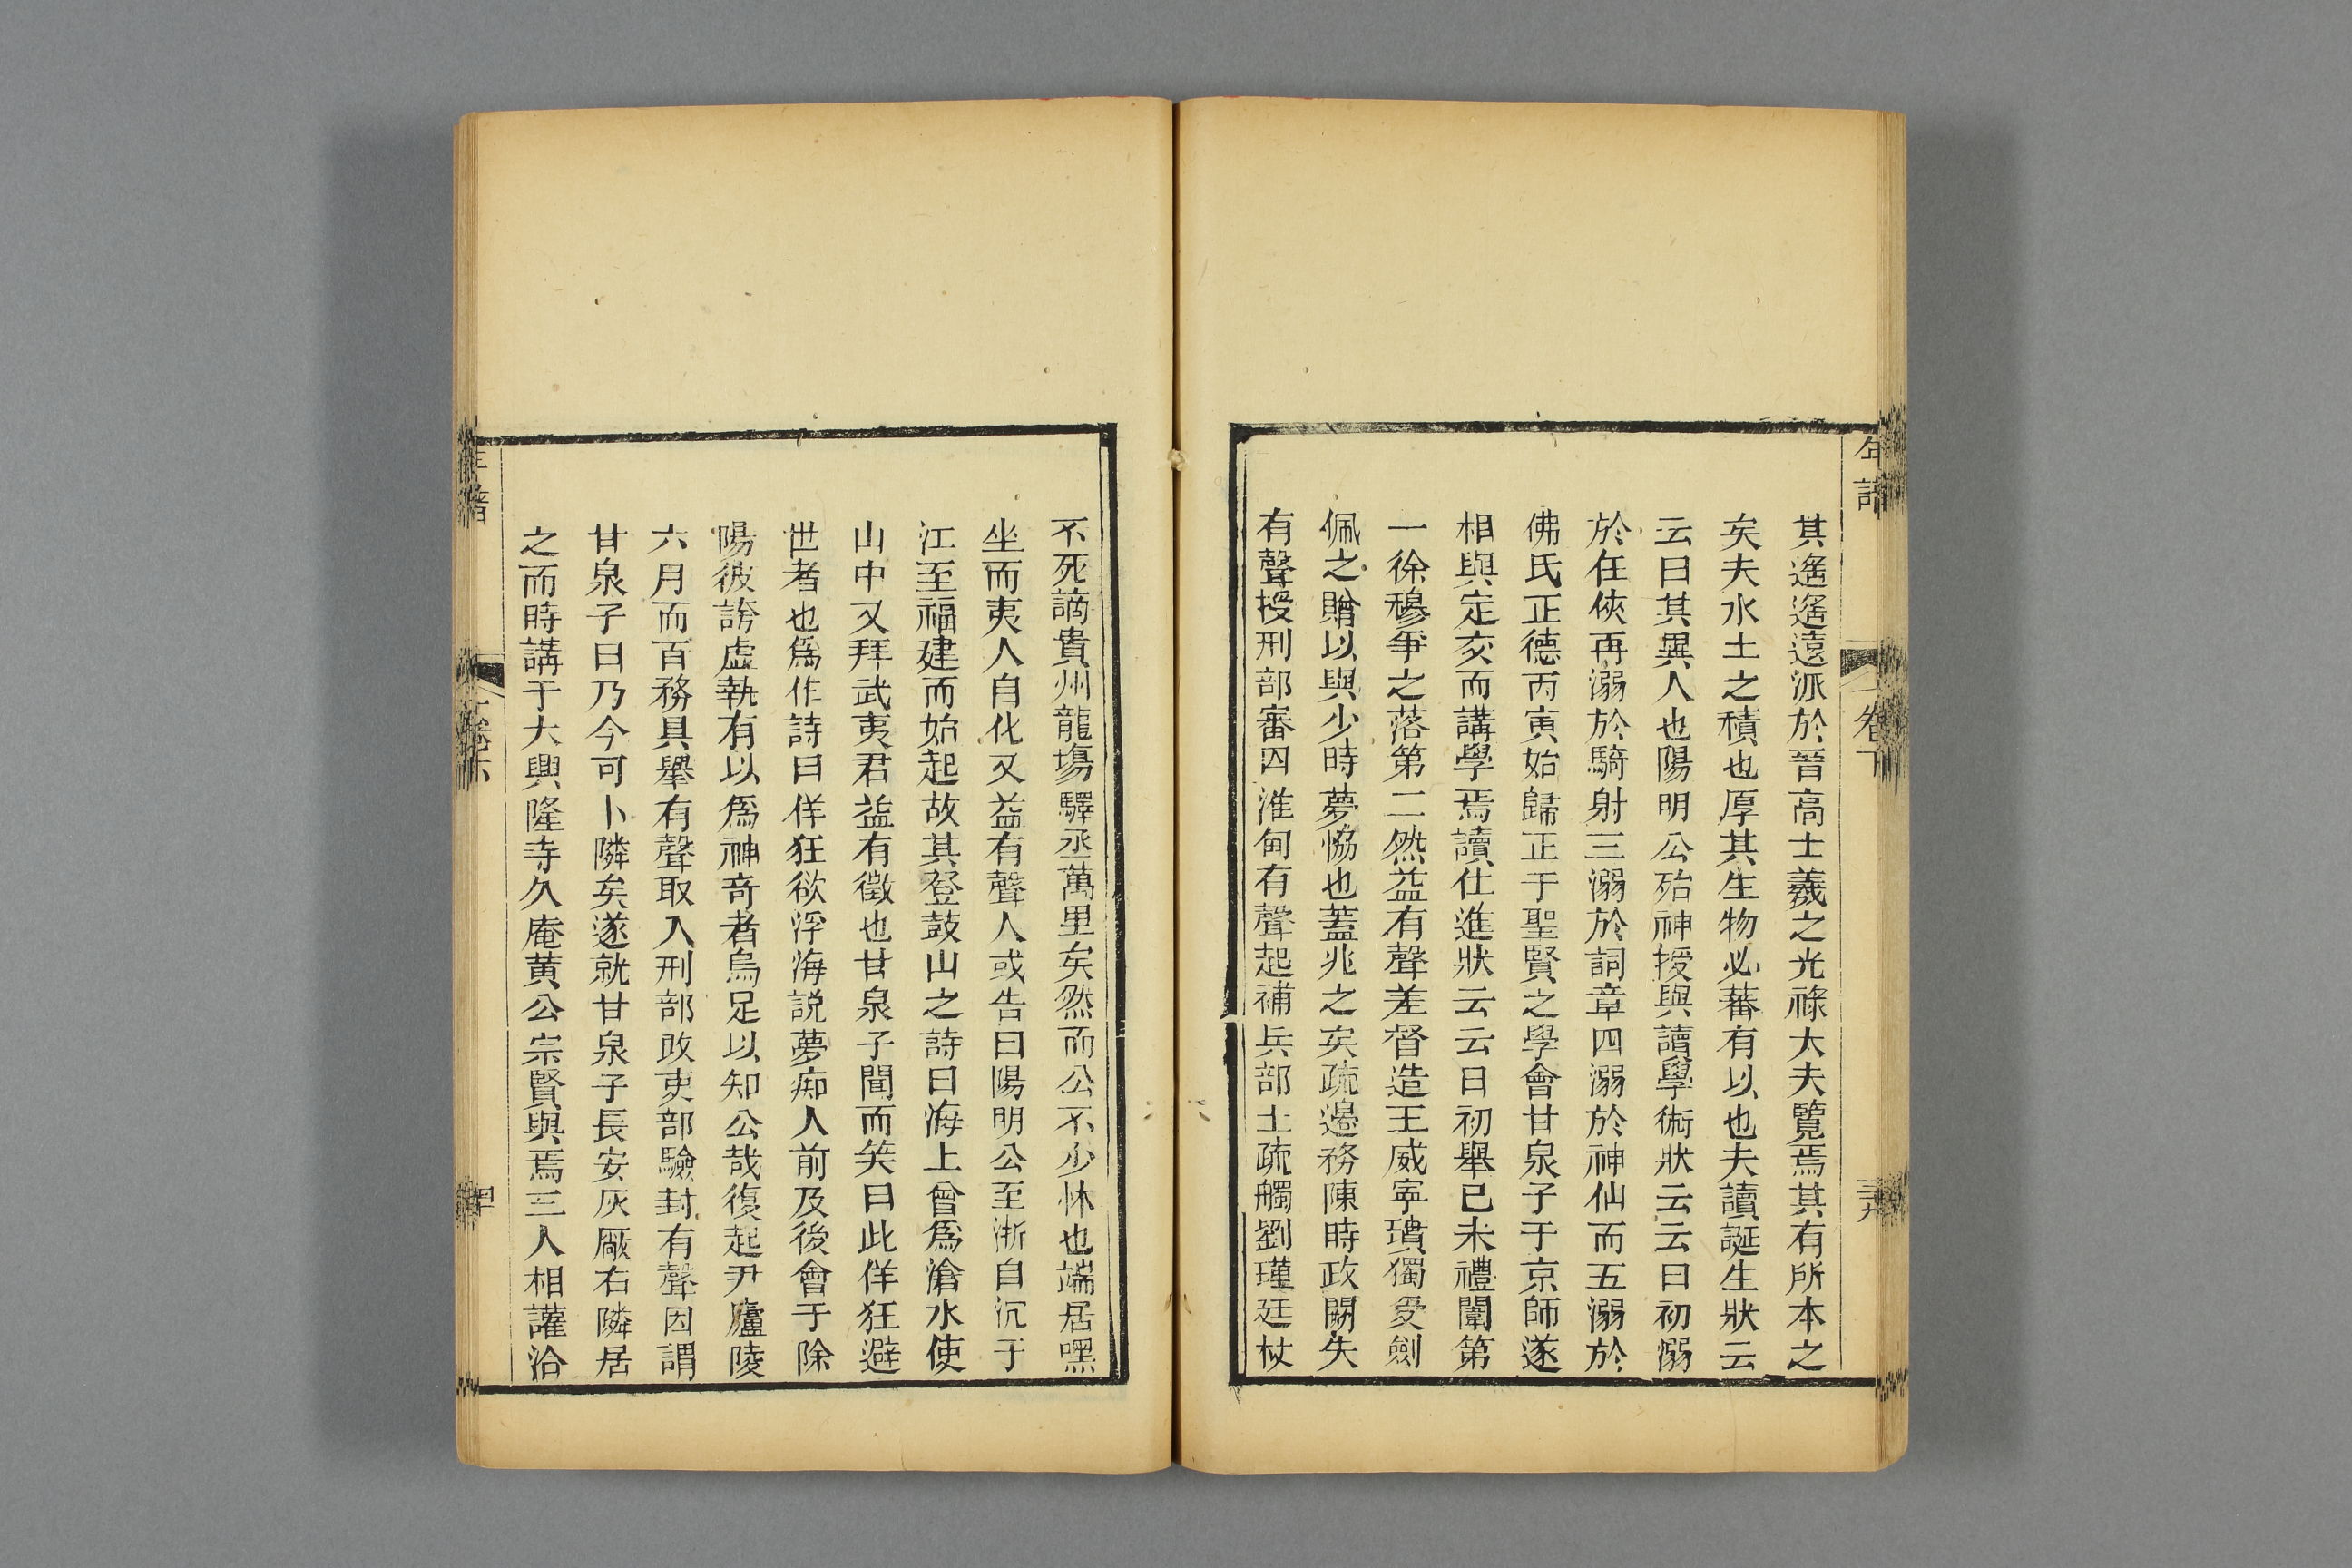 年譜 卷下 三十九
其遙遙遠派於晉高士羲之光祿大夫覽焉其有所本之
矣夫水土之積也厚其生物必蕃有以也夫讀誕生狀云
云曰其異人也陽明公殆神授與讀學術狀云云曰初溺
於任俠再溺於騎射三溺於詞章四溺於神仙而五溺於
佛氏正德丙寅始歸正于聖賢之學會甘泉子于京師遂
相與定交而講學焉讀仕進狀云云曰初舉己未禮闈第
一徐穆爭之落第二然益有聲差督造王威寧墳獨受劍
佩之贈以與少時夢恊也蓋兆之矣疏邊務陳時政闕失
有聲授刑部審囚淮甸有聲起補兵部上疏觸劉瑾廷杖
不死謫貴州龍塲驛丞萬里矣然而公不少怵也端居嘿
坐而夷人自化又益有聲人或告曰陽明公至浙自沉于
江至福建而始起故其登鼓山之詩曰海上曾爲滄水使
山中又拜武夷君益有徵也甘泉子聞而笑曰此佯狂避
世者也爲作詩曰佯狂欲浮海説夢痴人前及後會于除
陽彼誇虛執有以爲神奇者烏足以知公哉復起尹廬陵
六月而百務具舉有聲取入刑部敗吏部驗封有聲因謂
甘泉子曰乃今可卜隣矣遂就甘泉子長安灰廠右隣居
之而時講于大興隆寺久庵黄公宗賢與焉三人相讙洽
年譜